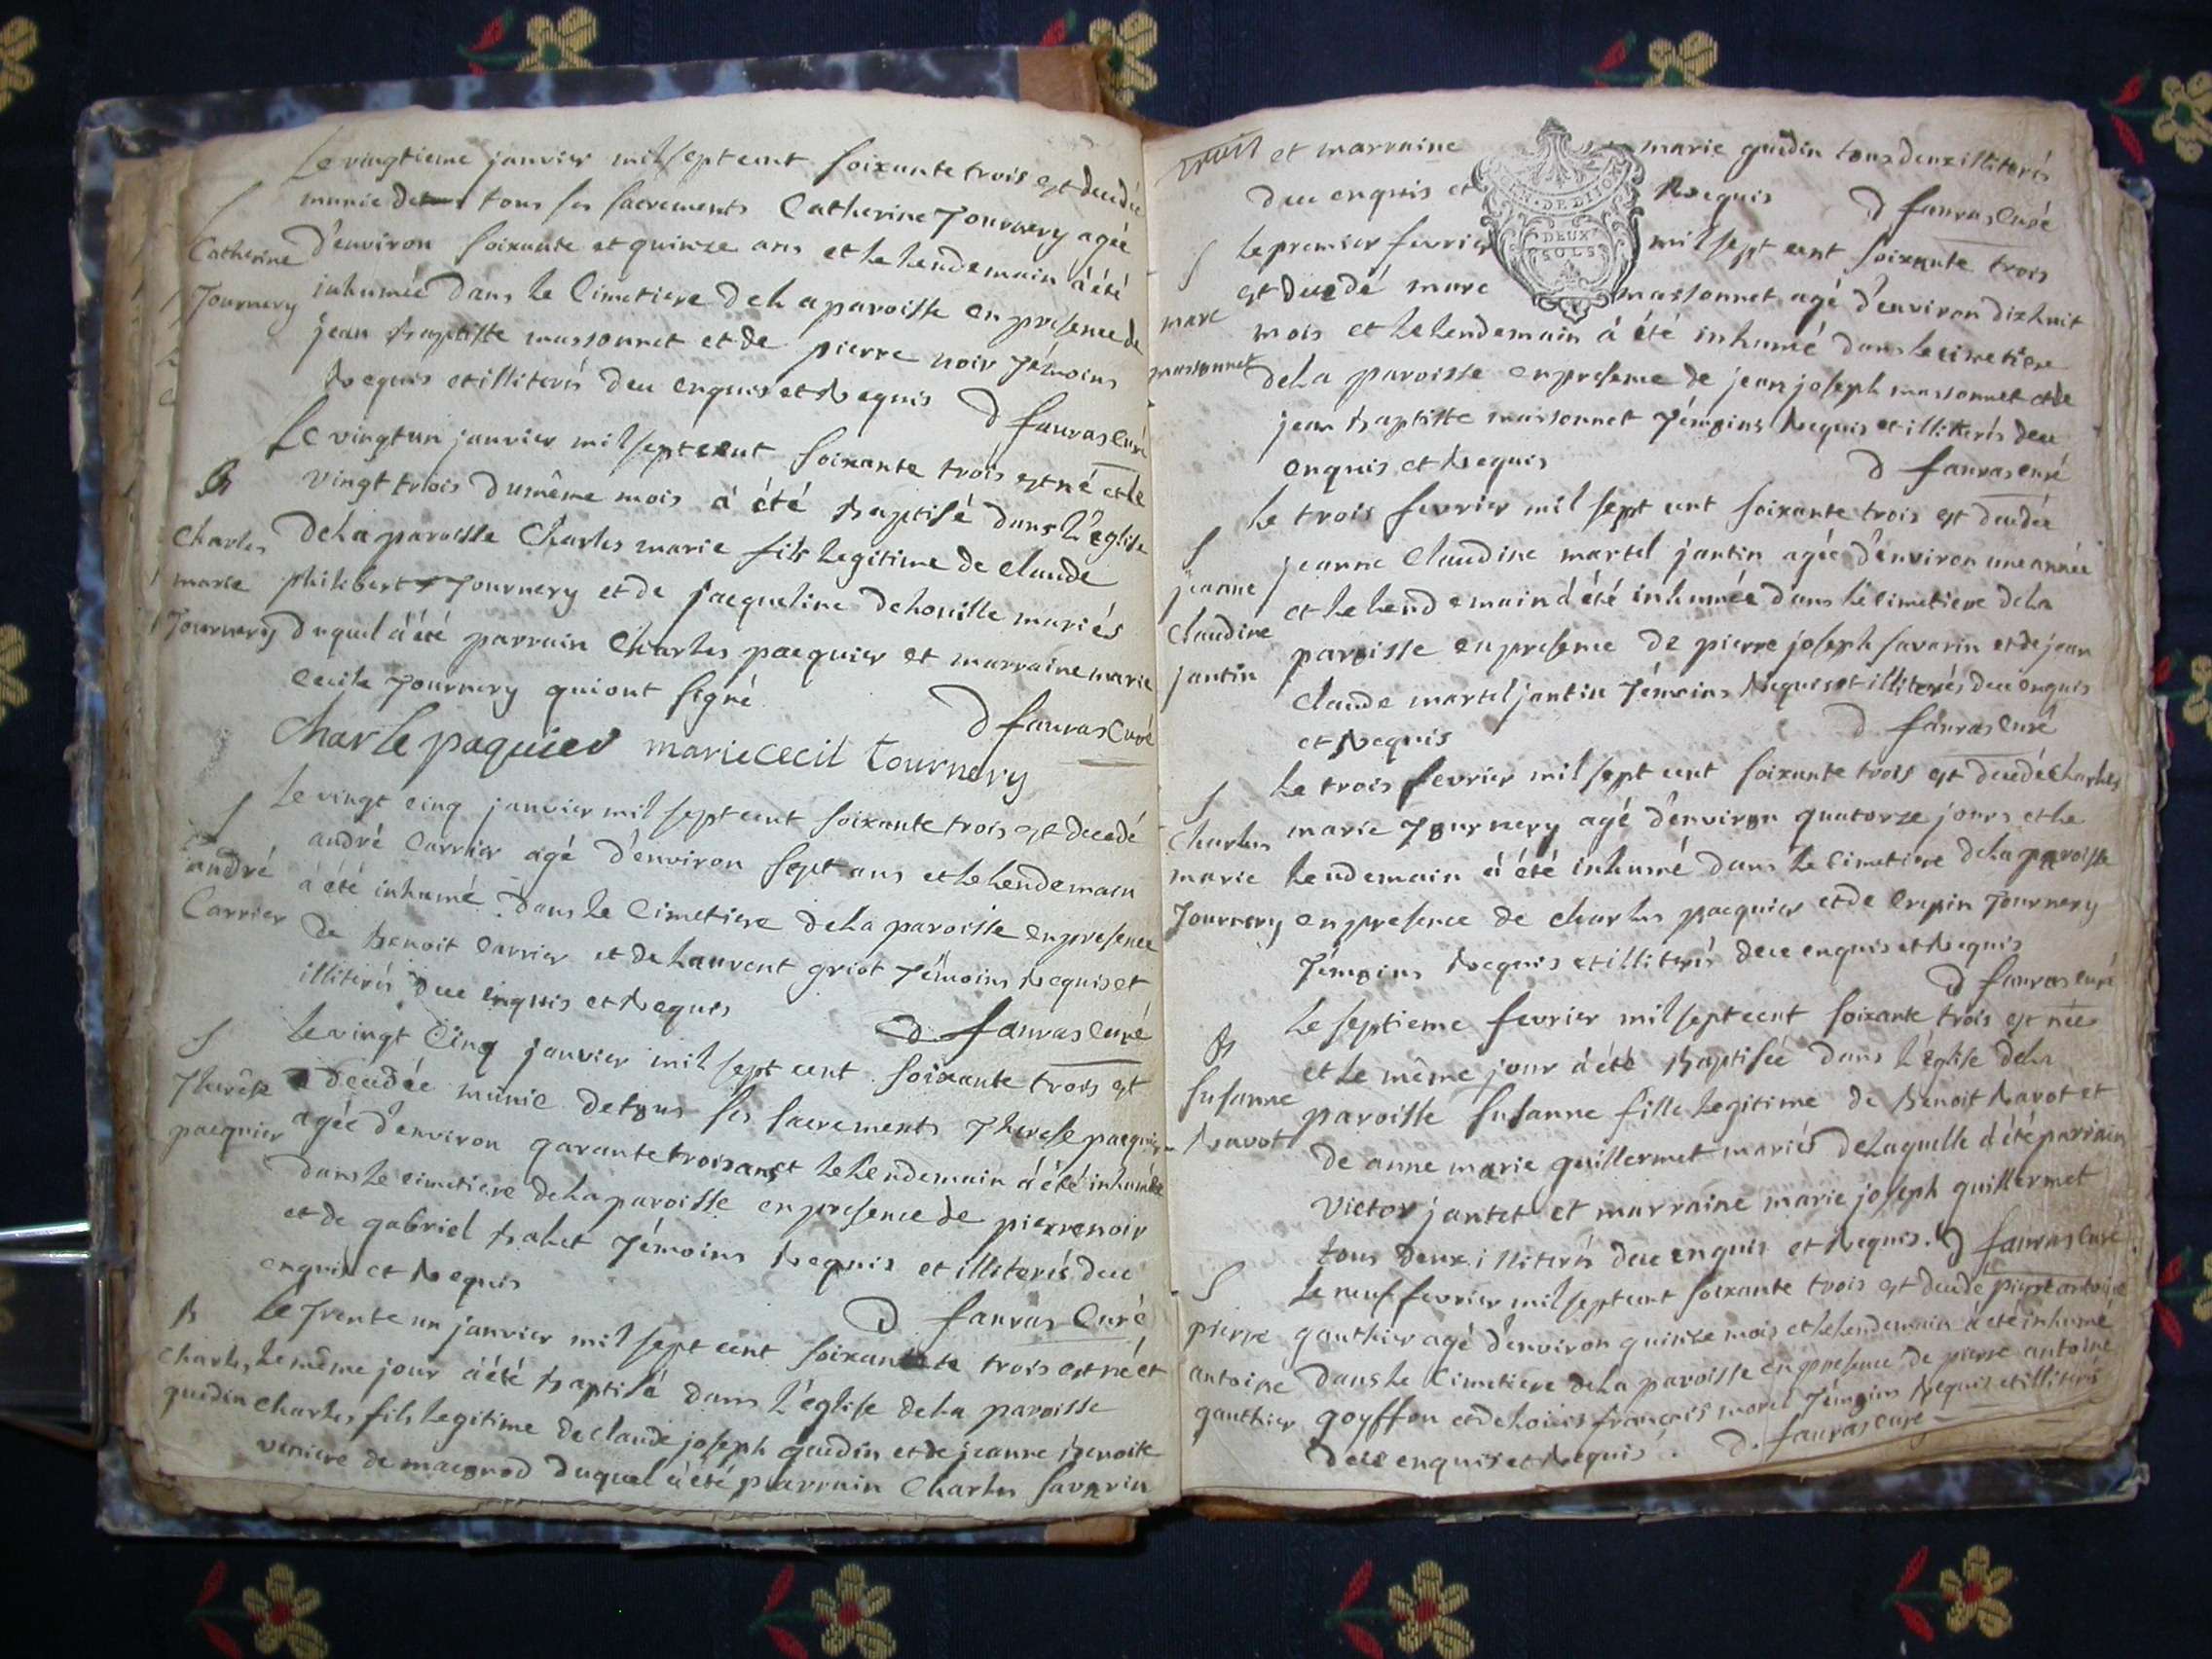 Le vingtieme janvier mil sept cent soixante trois est decedée
munie de tous ses sacrements Catherine Tournery agée
d'environ soixante et quinze ans et le lendemain à été
inhumée dans le cimetiere de la paroisse en presence de
jean baptiste massonnet et de pierre noir Témoins
Requis et illiterés deu enquis et Requis
D fauvas curé
S
Catherine
Tournery
Le vingt un janvier mil sept cent soixante trois est né et le
vingt trois du même mois à été baptisé dans l'église
de la paroisse Charles marie fils legitime de claude
philibert Tournery et de jacqueline dehouille mariés
duquel à été parrain Charles pacquier et marraine marie
cecile Tournery qui ont signé
D fauvas curé
B
Charles
marie
Tournery
charle paquier marie cecil tournery
Le vingt cinq janvier mil sept cent soixante trois est decedé
andré carrier agé d'environ sept ans et le lendemain
à été inhumé dans le cimetiere de la paroisse en presence
de benoit carrier et de laurent griot Témoins Requis et
illiterés deu enquis et Requis
D. fauvas curé
S
andré
Carrier
Le vingt cinq janvier mil sept cent soixante trois est
decedée munie de tous ses sacrements Therese pacquier
agée d'environ quarante trois ans et le lendemain à été inhumée
dans le cimetiere de la paroisse en presence de pierre noir
et de gabriel babet Témoins Requis et illiterés deu
enquis et Requis
D fauvas curé
S
Therese
pacquier
Le Trente un janvier mil sept cent soixante trois est né et
le même jour à été baptisé dans l'église de la paroisse
Charles fils legitime de claude joseph guedin et de jeanne benoite
de maconod duquel à été parrain Charles savarin
B
Charles
guedin
et marraine marie guedin tous deux illiterés
deu enquis et Requis
D fauvas curé
GEN. DE DIJON
DEUX
SOLS
Le premier fevrier mil sept cent soixante trois
est decedé marc massonnet agé d'environ dixhuit
mois et le lendemain à été inhumé dans le cimetiere
de la paroisse en presence de jean joseph massonnet et de
jean baptiste massonnet Témoins Requis et illiterés deu
enquis et Requis
D fauvas curé
S
marc
massonnet
Le trois fevrier mil sept cent soixante trois est decedée
jeanne claudine martel jantin agée d'environ une année
et le lendemain à été inhumée dans le cimetiere de la
paroisse en presence de pierre joseph savarin et de jean
claude martel jantin Témoins Requis et illiterés deu enquis
et Requis
D fauvas curé
S
jeanne
claudine
jantin
Le trois fevrier mil sept cent soixante trois est decedé charles
marie Tournery agé d'environ quatorze jours et le
lendemain à été inhumé dans le cimetiere de la paroisse
en presence de charles pacquier et de crepin Tournery
Témoins Requis et illiterés deu enquis et Requis
D fauvas curé
S
Charles
marie
Tournery
Le septieme fevrier mil sept cent soixante trois est née
et le même jour à été baptisée dans l'église de la
paroisse susanne fille legitime de benoit Ravot et
de anne marie guillermet mariés de laquelle à été parrain
Victor jantet et marraine marie joseph guillermet
tous deux illiterés deu enquis et Requis. D fauvas curé
B
susanne
Ravot
Le neuf fevrier mil sept cent soixante trois est decedé pierre antoine
gauthier agé d'environ quinze mois et le lendemain à été inhumé
dans le cimetiere de la paroisse en presence de pierre antoine
goyffon et de louis françois morel Témoins Requis et illiterés
deu enquis et Requis. D. fauvas curé
S
pierre
antoine
gauthier